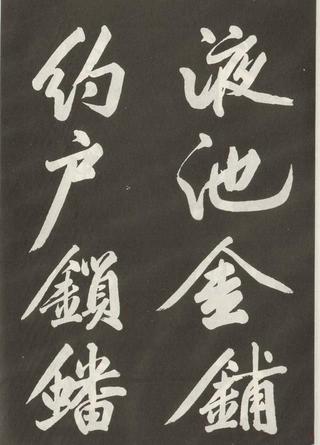 液池金鋪
約户鎖蟠